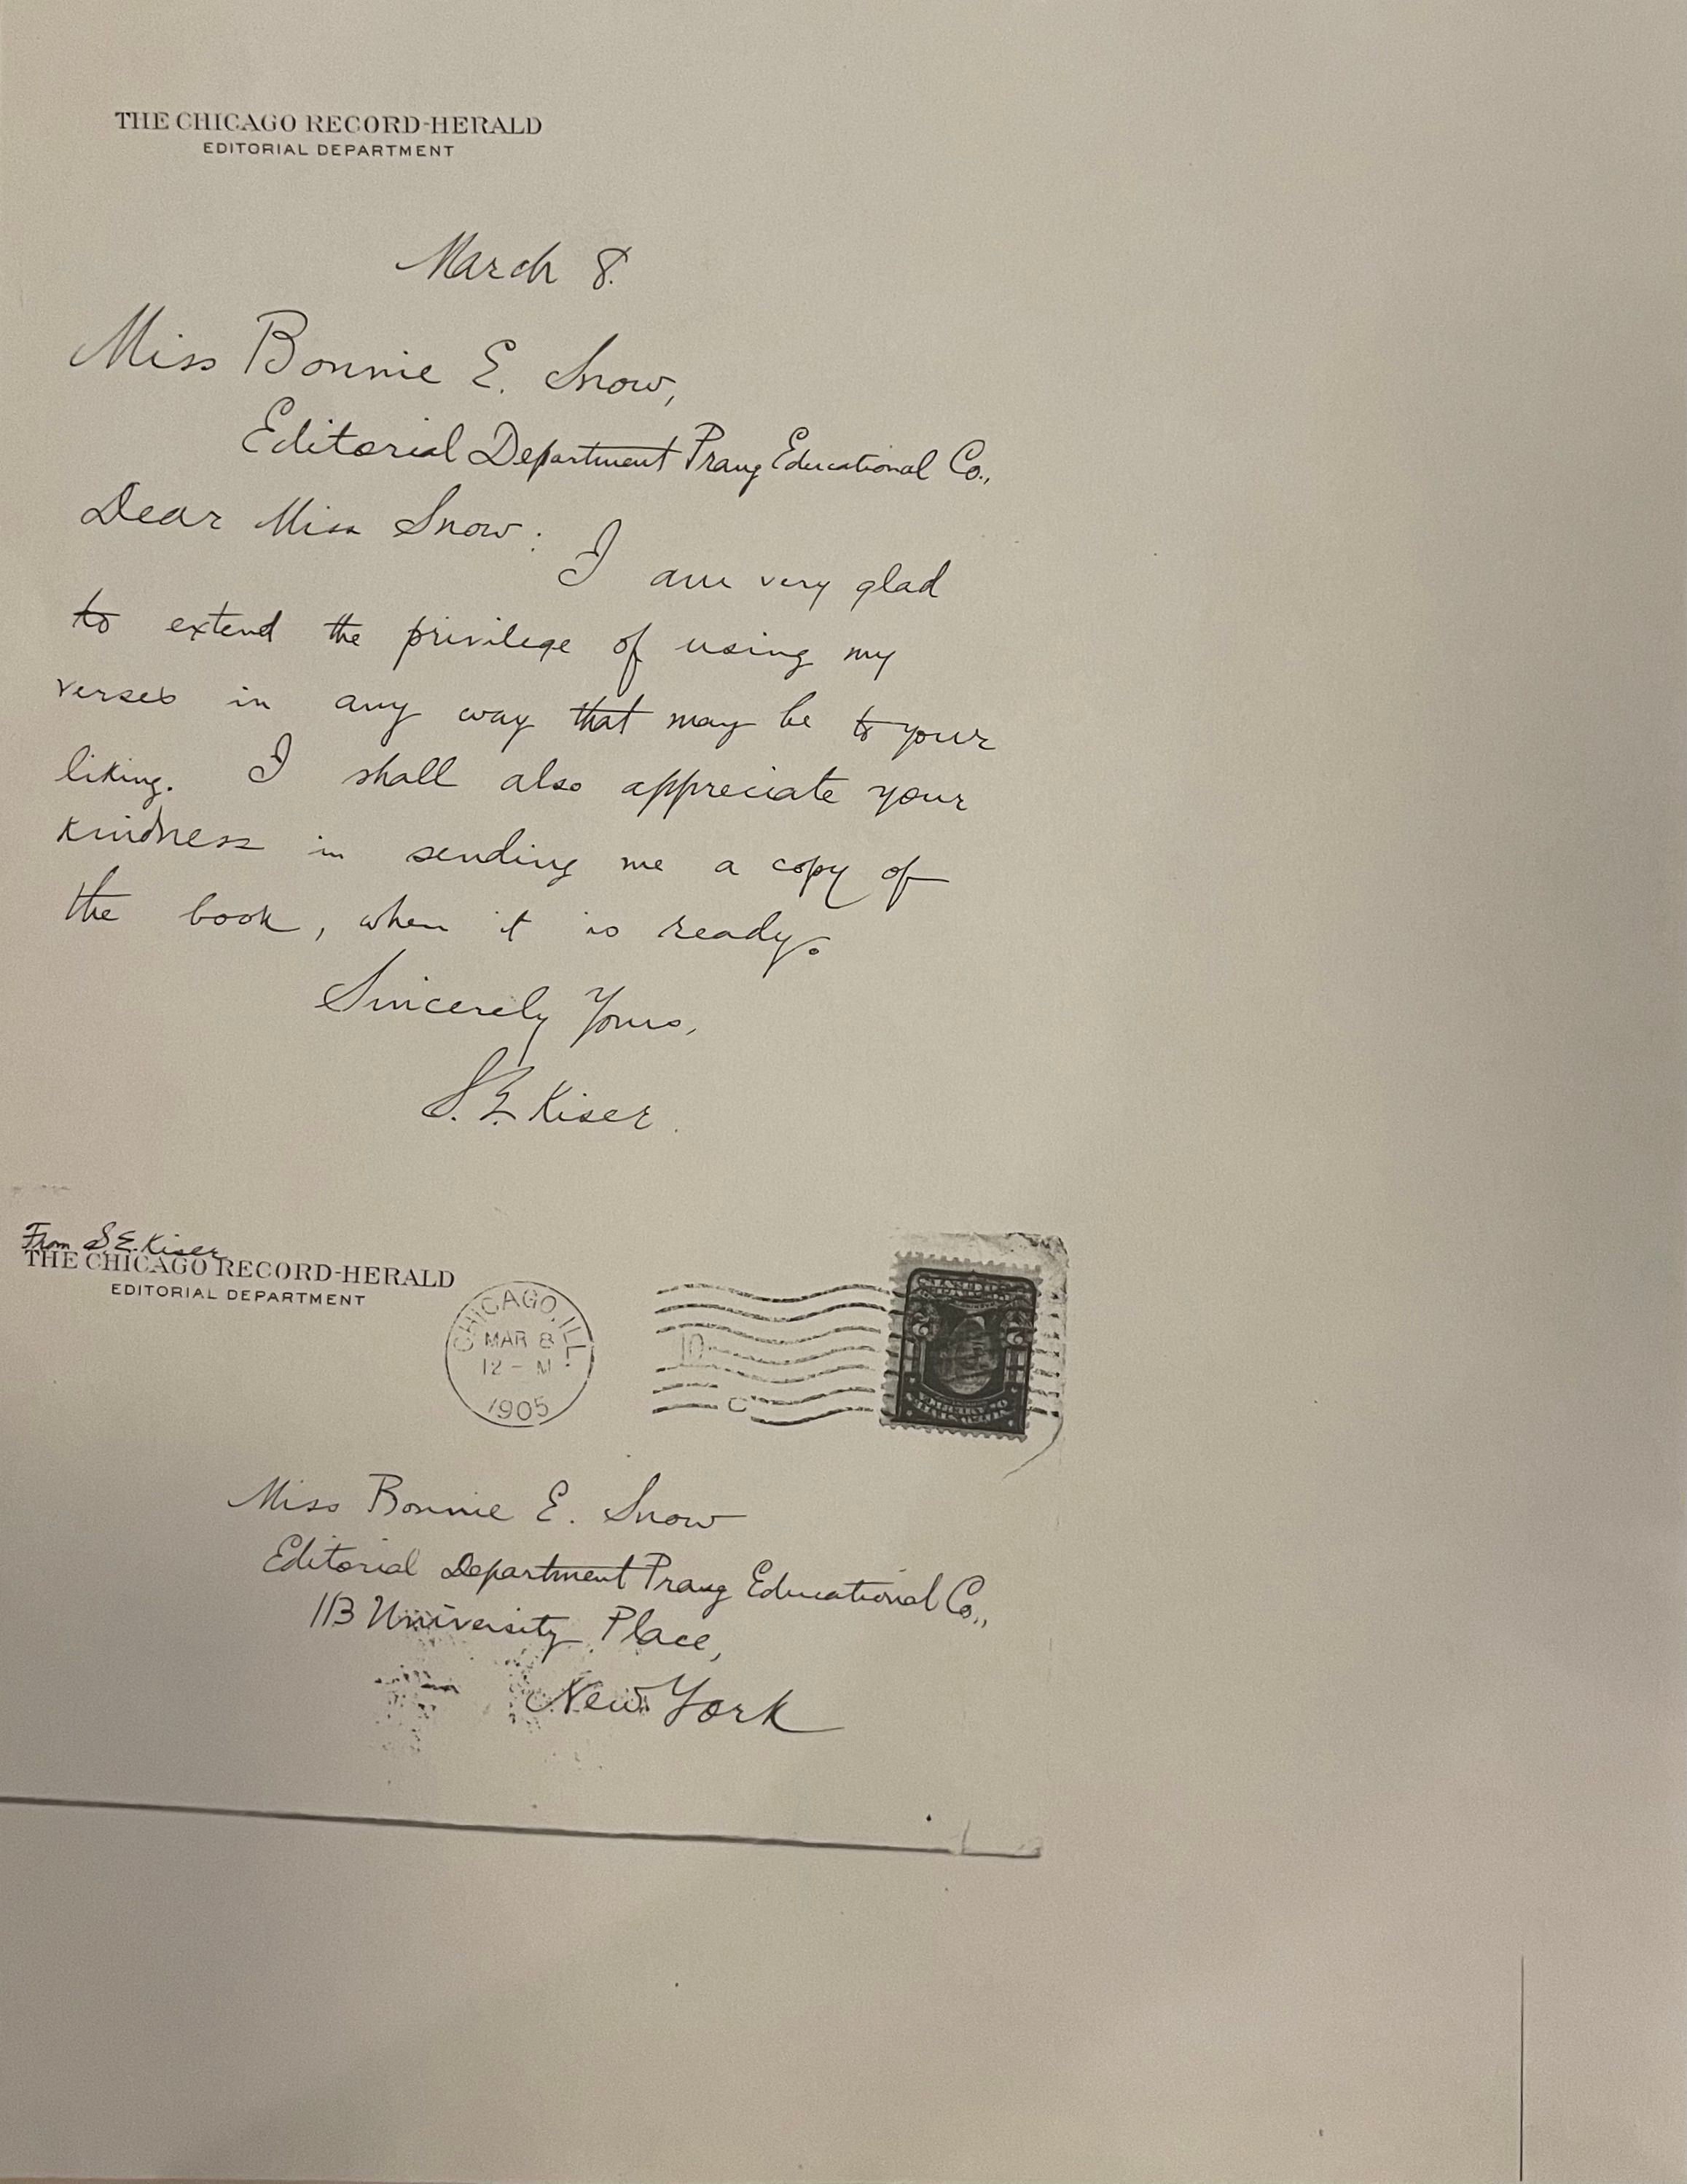 THE CHICAGO RECORD-HERALD
EDITORIAL DEPARTMENT
March 8.
Miss Bonnie E. Snow,
Editorial Department Prang Educational Co.,
Dear Miss Snow:
I am very glad
to extend the privilege of using my
verses in any way that may be to your
liking. I shall also appreciate your
kindness in sending me a copy of
the book, when it is ready.
Sincerely Yours,
S. E. Kiser.
From S. E. Kiser
THE CHICAGO RECORD-HERALD
EDITORIAL DEPARTMENT
CHICAGO, ILL.
MAR 8
12 - M
1905
10
C
2 2
Miss Bonnie E. Snow
Editorial Department Prang Educational Co.,
113 University Place,
New York